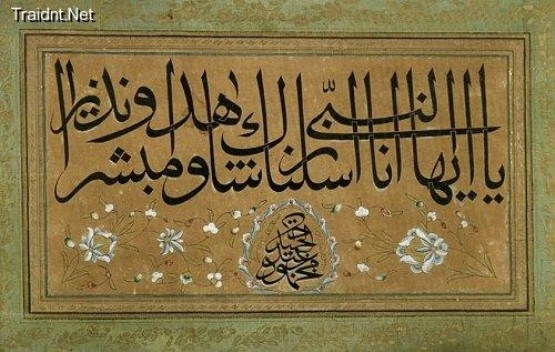 Traidnt.Net
يا ايها النبي انا ارسلناك شاهدا ومبشرا ونذيرا
محمود عبد الحميد